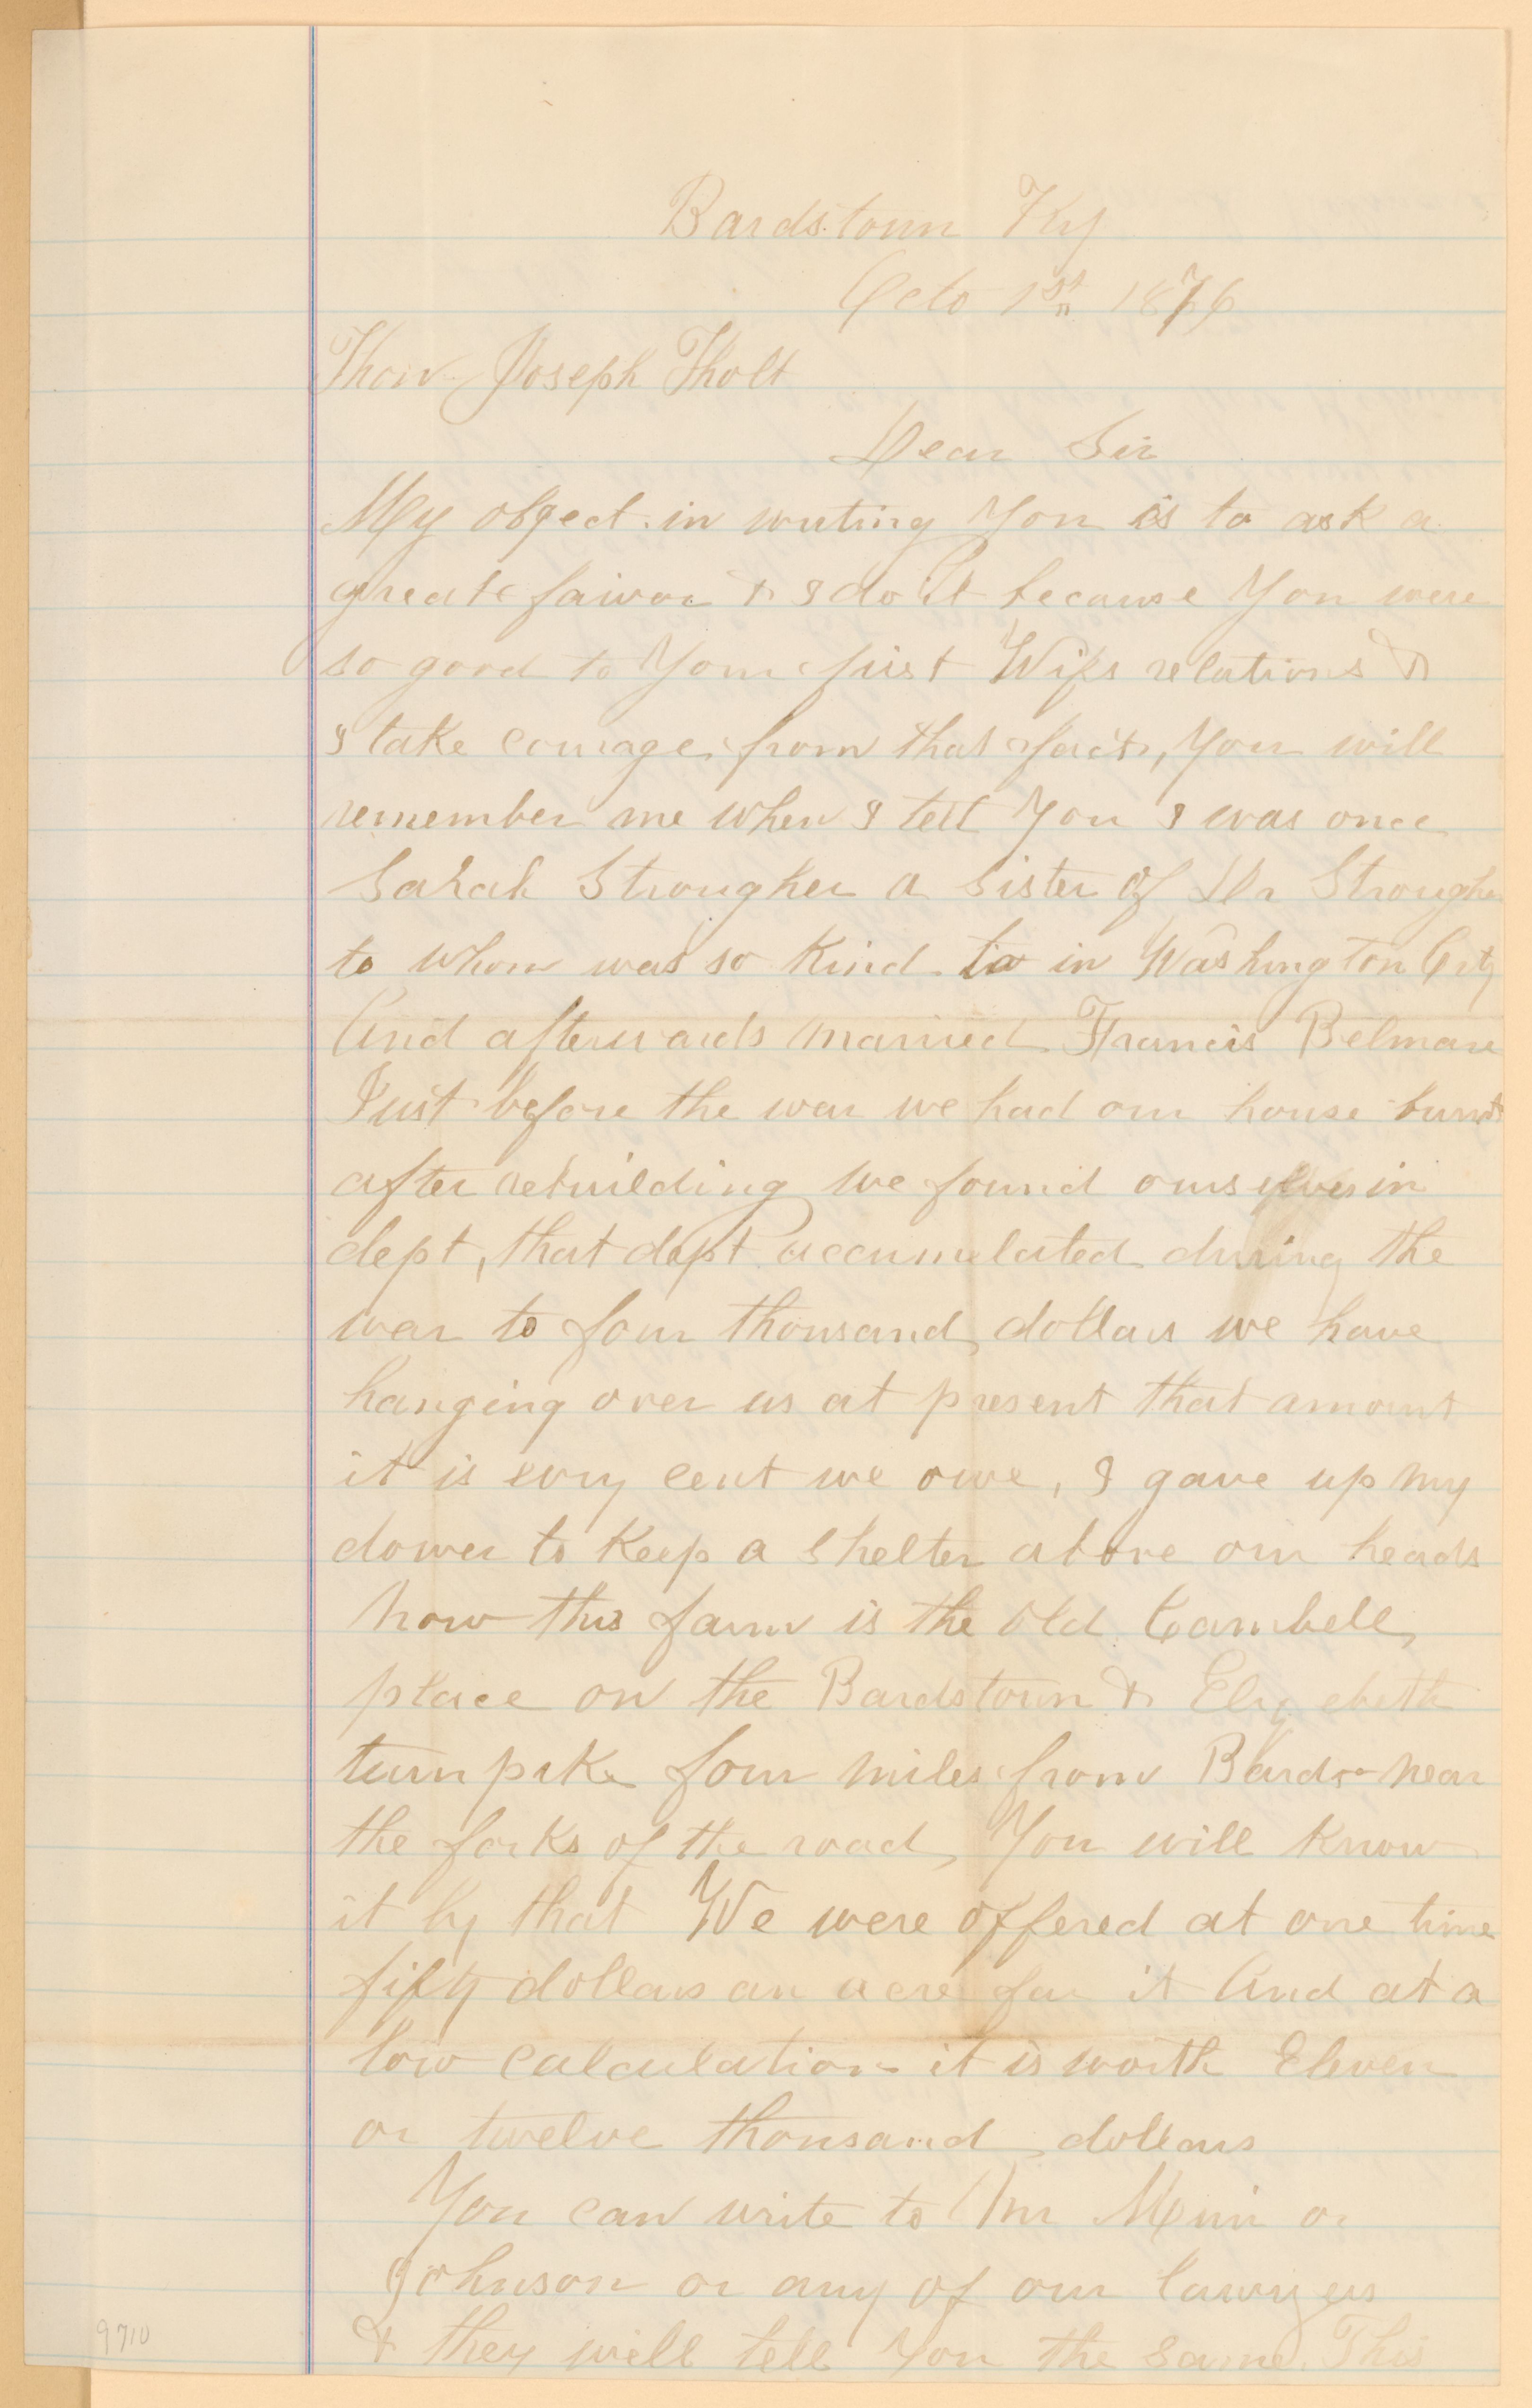 Bardstown Ky
Octo 1st 1876
Hon Joseph Holt
Dear Sir
My object in writing You is to ask a
greate faivor & I do it because You were
so good to Your first Wifs relations &
I take courage from that fact, You will
remember me when I tell You I was once
Sarah Strougher a sister of Dr Strougher
to whom was so kind to in Washington City
And afterwards married Francis Belmare
Just before the war we had our house burnt
after rebuilding we found ourselves in
dept, that dept accumulated during the
war to four thousand dollars we have
hanging over us at present that amount
it is evry cent we owe, I gave up my
dower to Keep a shelter above our heads
now this farm is the old Cambell
place on the Bardstown & Elizebeth
turnpike four miles from Bards- near
the forks of the road, You will know
it by that We were offered at one time
fifty dollars an acre for it And at a
low calculation it is worth Eleven
or twelve thousand dollars
You can write to Mr Muir or
Johnson or any of our lawyers
& they will tell You the same. This
9710